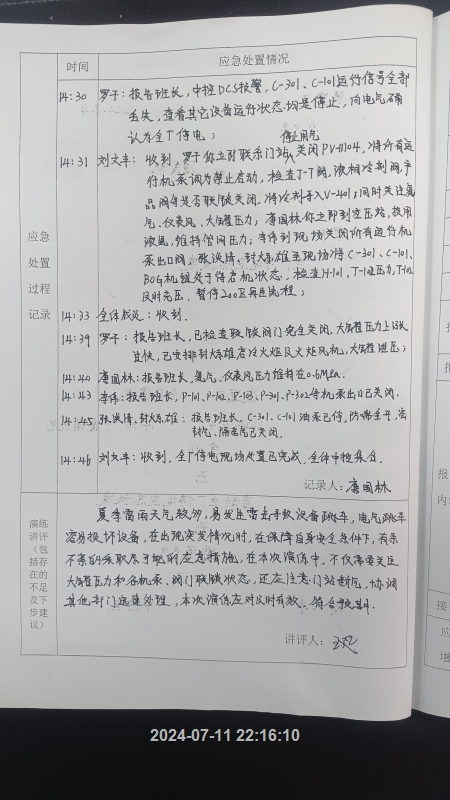 时间 应急处置情况
应急处置过程记录
14:30 罗子:报告班长,中控DCS报警,C-301、C-101运行信号全部
丢失,查看其它设备运行状态均是停止,向电气确
认为全厂停电;
停止用气
14:31 刘文丰:收到,罗子你立即联系门站,关闭PV-11104,将所有运
行机泵调为禁止启动,检查J-T阀,液相冷剂阀,产
品阀等是否联锁关闭,将冷剂导入V-401;同时关注氮
气、仪表风、大储压力;唐国林你立即到空压站,投用
液氮,维持管网压力;李伟到现场关闭所有运行机
泵出口阀,张洪清、封大雄去现场将C-301、C-101、
BOG机组处于停启机状态,检查H-101、T-102压力,
及时充压,暂停200区再生流程;
14:33 全体成员:收到.
14:39 罗子:报告班长,已检查联锁阀门完全关闭,大储压力上涨
较快,已安排封大雄启冷火炬及火炬风机,大储泄压;
14:40 唐国林:报告班长,氮气、仪表风压力维持在0.6Mpa.
14:43 李伟:报告班长,P-101、P-102、P-103、P-301、P-302待机泵出口已关闭.
14:45 张洪清、封大雄:报告班长,C-301、C-101油泵已停,防喘全开,密
封气、隔离气已关闭.
14:46 刘文丰:收到,全厂停电现场处置已完成,全体中控集合.
记录人:唐国林
演练讲评(包括存在的不足及下步建议)
夏季雷雨天气较多,易发生雷击导致设备跳车,电气跳车
容易损坏设备,在出现突发情况时,在保障自身安全条件下,有条
不紊的采取尽可能的应急措施,在本次演练中,不仅需要关注
大储压力和各机泵、阀门联锁状态,还应注意门站断气,协调
其他部门迅速处理,本次演练应对及时有效,符合预期.
讲评人:
报
内
接
应
增
2024-07-11 22:16:10